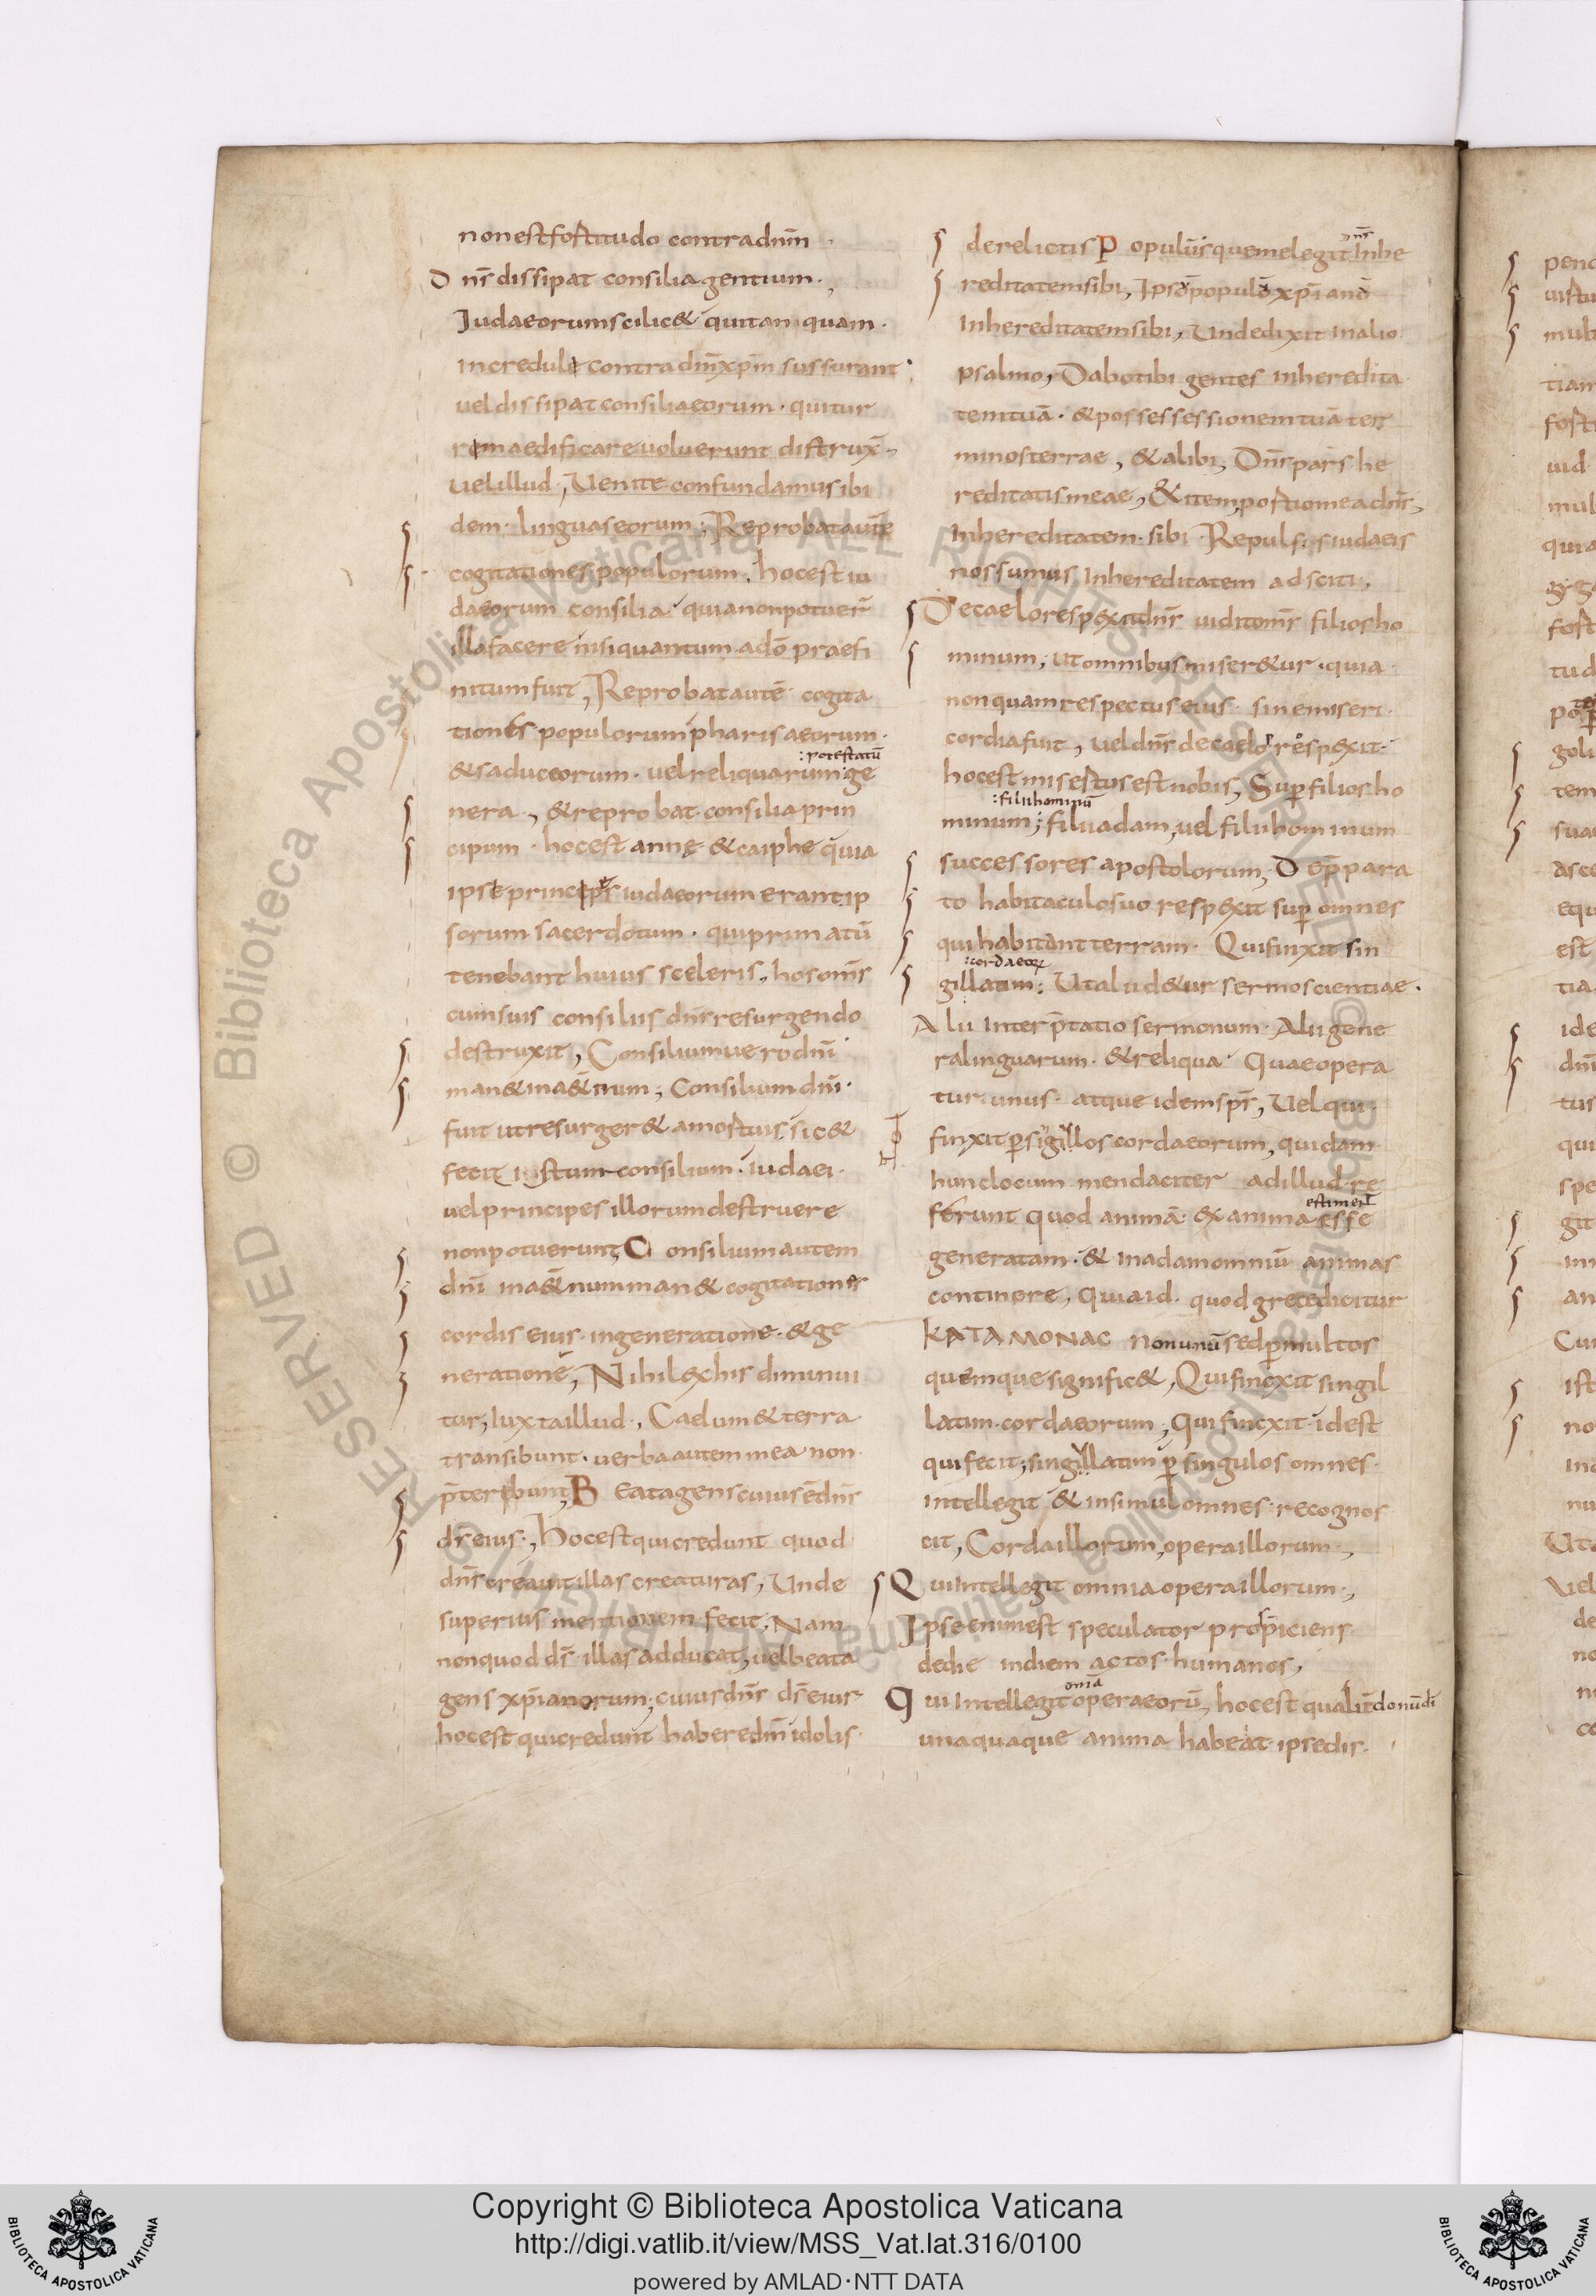 non est fortitudo contra dnm̄
D ns̄ dissipat consilia gentium.,
Iudaeorum scilic& qui tamquam.
increduli contra dnm̄ xpm̄ sussurant
uel dissipat consilia eorum. qui tur
rem aedificare uoluerunt distrux̄.,
uel illud, Uenite confundamus ibi
dem linguas eorum, Reprobat autē
cogitationes populorum. hoc est iu
daeorum consilia quia non potuer̄
illa facere nisi quantum a dō praefi
nitum fuit, Reprobat autē cogita
tiones populorum pharisaeorum.
:potestatū
& saduceorum. uel reliquarum: ge
nera, & reprobat consilia prin
cipum. hoc est annę & caiphe quia
ipse princeps iudaeorum erant ip
sorum sacerdotum. qui primatū
tenebant huius sceleris, hos omīs
cum suis consiliis dns̄ resurgendo
destruxit, Consilium uero dnī
man& in a&ernum; Consilium dnī.
fuit ut resurger& a mortuis. sic &
fecit iustum consilium. iudaei.
uel principes illorum destruere
non potuerunt, C onsilium autem
dnī in a&ernum man& cogitationes
cordis eius. in generatione. & ge
neratione, Nihil ex his diminui
tur, iuxta illud., Caelum & terra
transibunt. uerba autem mea non
p̄teribunt, B eata gens cuius ē dns̄
ds̄ eius., Hoc est qui credunt quod
dns̄ creauit illas creaturas, Unde
superius mentionem fecit, Nam
non quod ds̄ illas adducat, uel beata
gens xp̄ianorum; cuius dns̄ ds̄ eius
hoc est qui credunt habere dnm̄ idolis.
derelictis P opulus quem elegit in he
dns̄
reditatem sibi, Ipse populus xp̄iano
in hereditatem sibi, Unde dixit in alio
psalmo, Dabo tibi gentes in heredita
tem tuā. & possessessionem tuā ter
minos terrae, & alibi, Dns̄ pars he
reditatis meae, & item, portio mea dns̄,
In hereditatem sibi. Repulsis iudaeis
nos sumus in hereditatem adsciti,
De caelo respexit dns̄ uidit omīs filios ho
minum, ut omnibus miser&ur. quia
nonquam respectus eius. sine miseri
cordia fuit, uel dns̄ de caelo respexit.
hoc est misertus est nobis, Sup̄ filios ho
:filii hominū
minum; filii adam, uel filii hominum
successores apostolorum, D e p̄para
to habitaculo suo respexit sup̄ omnes
qui habitant terram. Qui finxit sin
:corda eoꝝ
gillatim: Ut alii d&ur sermo scientiae.
Alii interp̄tatio sermonum. Alii gene
ra linguarum. & reliqua. Quae opera
tur unus. atque idem sps̄, Uel qui.
finxit p̄ sigillos corda eorum, quidam
hunc locum mendaciter ad illud re
ferunt quod animā. ex anima esse
generatam. & in adam omniū animas
continere, quia id. quod grece dicitur
KATAMONAC non unū sed p̄multos
quemque signific&, Qui fincxit singil
latim. corda eorum, qui fincxit. id est
qui fecit, singillatim p̄ singulos omnes.
intellegit & insimul omnes. recognos
cit, Corda illorum, opera illorum.,
Qui intellegit omnia opera illorum.,
Ipse enim est speculator prospiciens
de die in diem actos humanos,
omīa
Qui intellegit opera eorū, hoc est qualit̄ donū dī
unaquaque anima habeat. ipse dis.
Copyright © Biblioteca Apostolica Vaticana
http://digi.vatlib.it/view/MSS_Vat.lat.316/0100
powered by AMLAD·NTT DATA